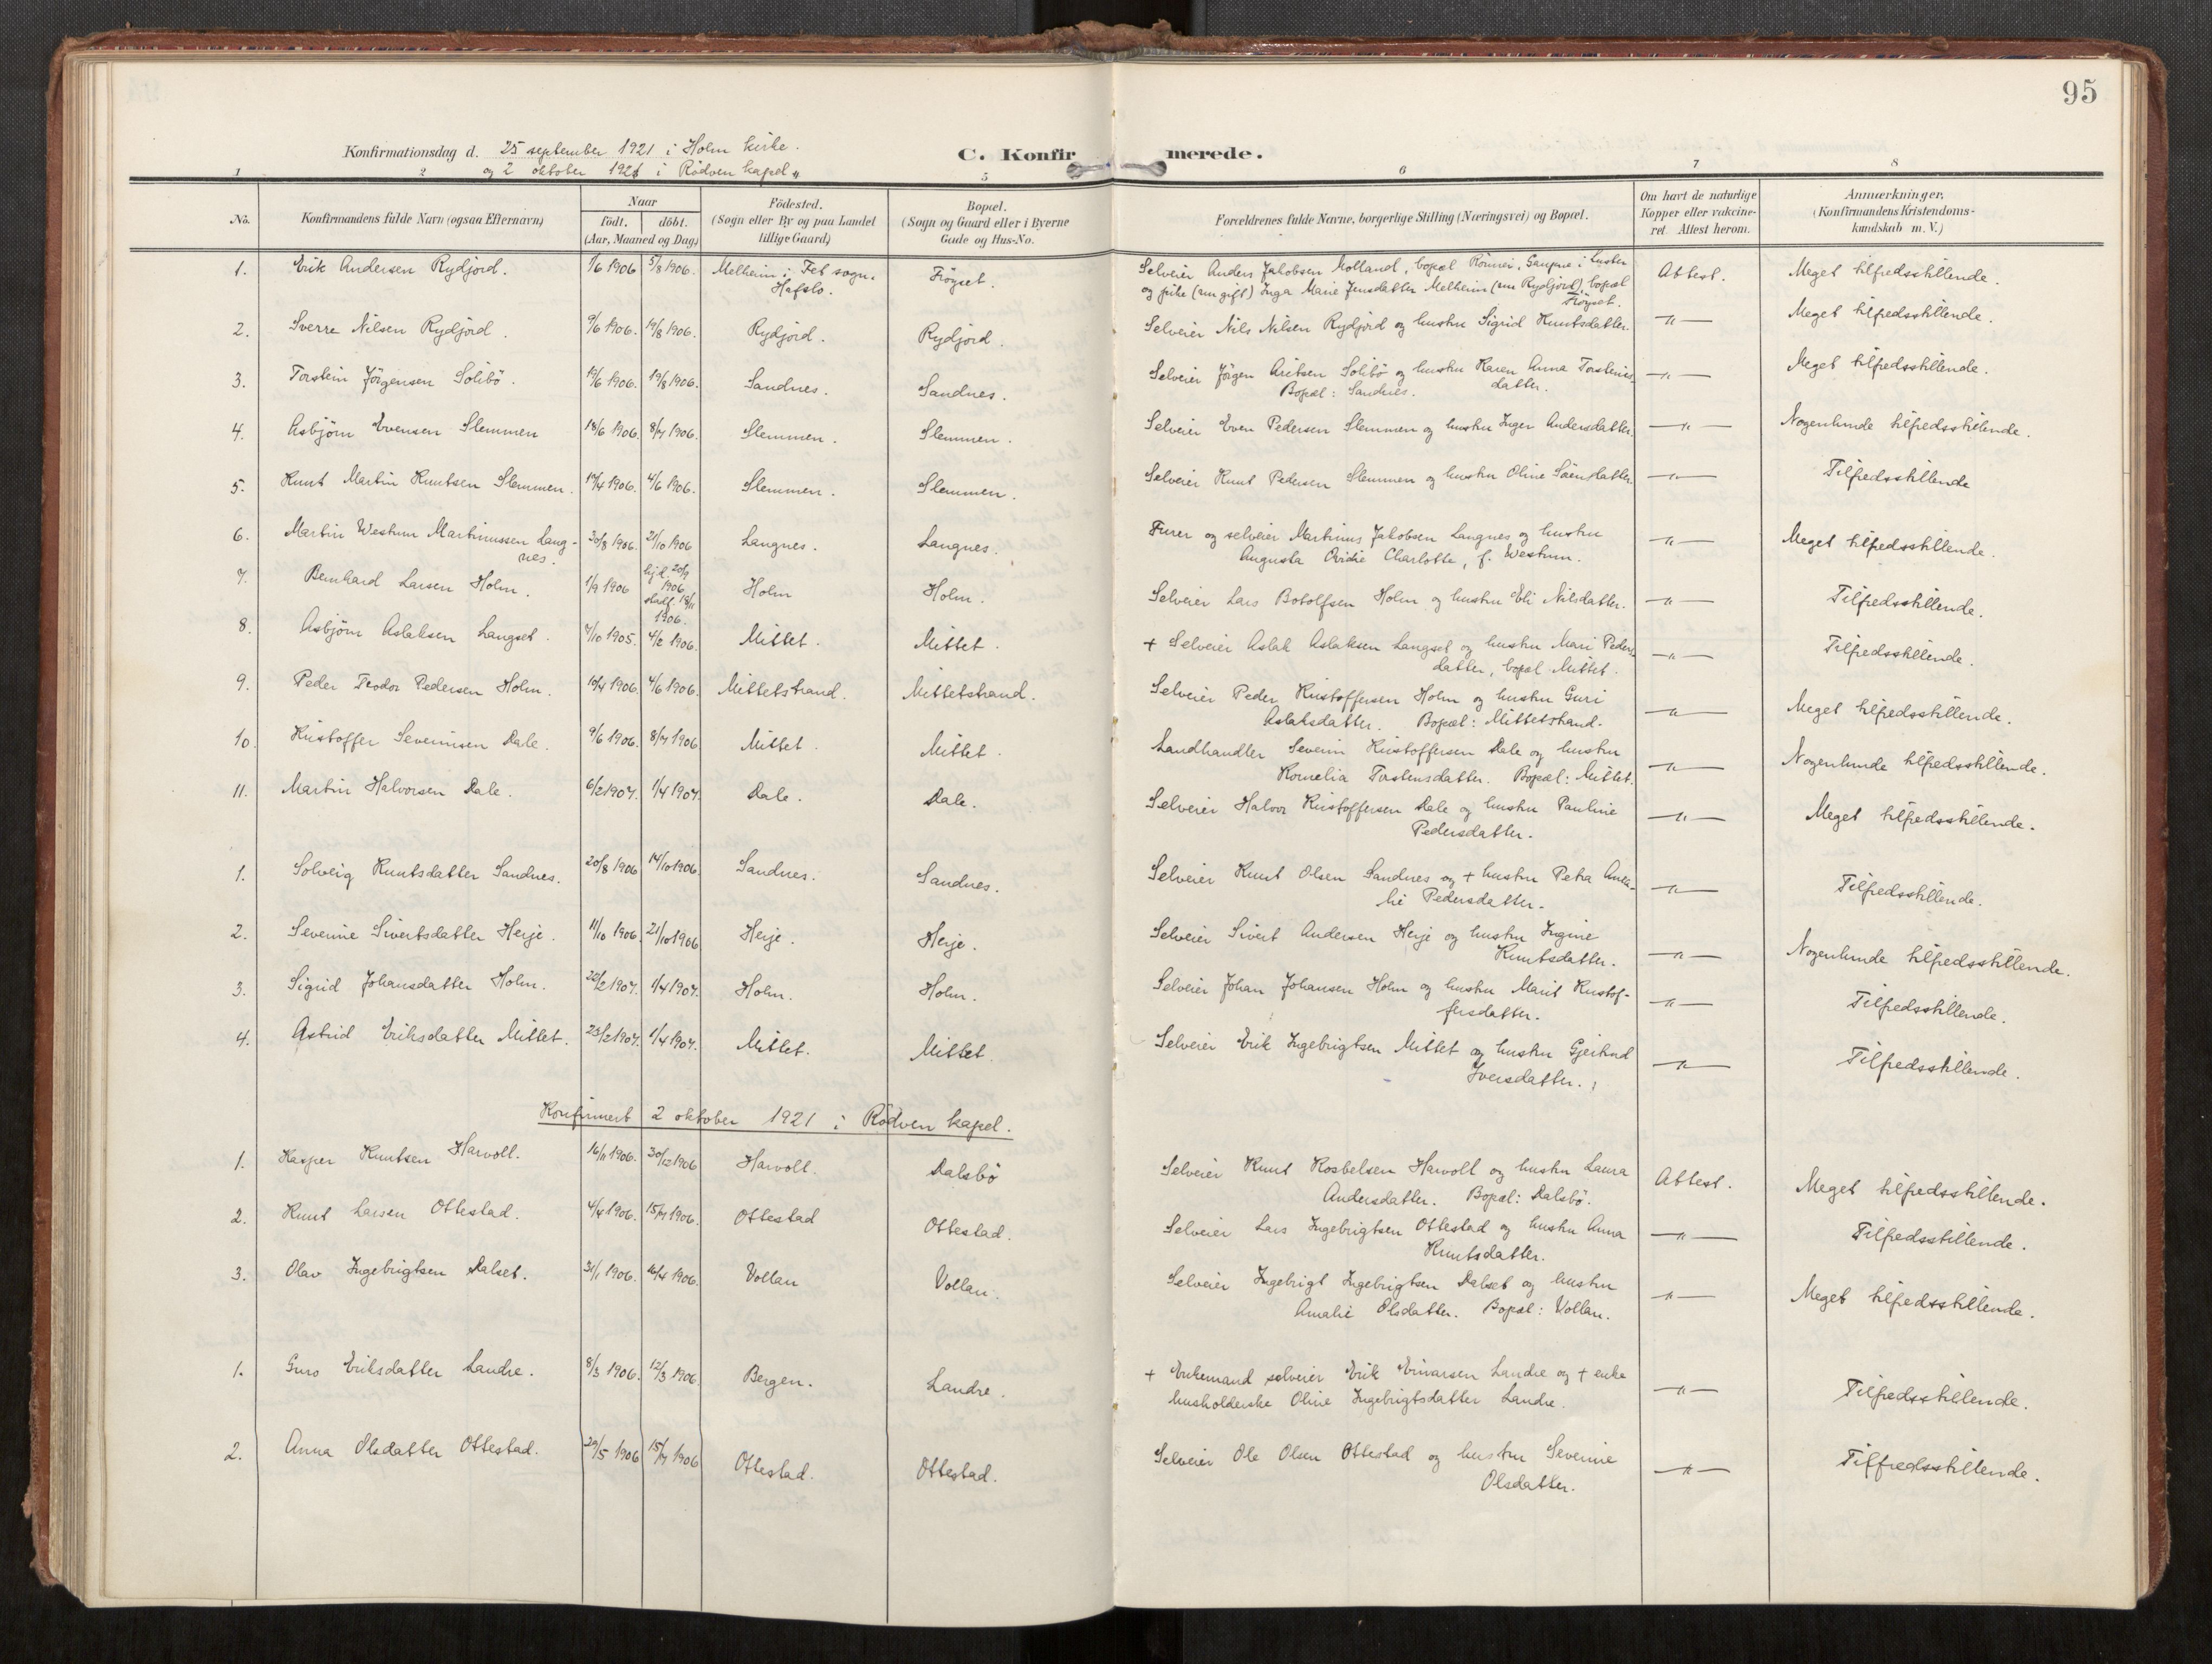 95
Konfirmationsdag d. 25 september 1921 i Holm kirke.
og 2 oktober 1921 i Rødven kapel.
C. Konfirmerede.
1 2 5 6 7 8
No.
Konfirmandens fulde Navn (ogsaa Efternavn)
Naar
födt. döbt.
(Aar, Maaned og Dag)
Födested.
(Sogn eller By og paa Landet
tillige Gaard)
Bopæl.
(Sogn og Gaard eller i Byerne
Gade og Hus-No.
Forældrenes fulde Navne, borgerlige Stilling (Næringsvei) og Bopæl.
Om havt de naturlige
Kopper eller vakcine-
ret. Attest herom.
Anmærkninger.
(Konfirmandens Kristendoms-
kundskab m. V.)
1. Erik Andersen Rydjord. 1/6 1906 5/8 1906. Melheim i Fet sogn. Hafslo. Frøyset. Selveier Anders Jakobsen Molland, bopæl Rönnei, Gaupne i Luster
og pike (nu gift) Inga Marie Jensdatter Melheim (nu Rydjord), bopæl Frøyset. Attest. Meget tilfredsstillende.
2. Sverre Nilsen Rydjord. 9/6 1906. 19/8 1906. Rydjord. Rydjord. Selveier Nils Nilsen Rydjord og hustru Sigrid Knutsdatter. —"— Meget tilfredsstillende.
3. Torstein Jörgensen Solibö. 19/6 1906. 19/8 1906. Sandnes. Sandnes. Selveier Jörgen Aritsen Solibö og hustru Karen Anna Torsteins-
datter. Bopæl: Sandnes. —"— Meget tilfredsstillende.
4. Asbjörn Evensen Slemmen 18/6 1906. 8/7 1906. Slemmen. Slemmen. Selveier Even Pedersen Slemmen og hustru Inger Andersdatter. —"— Nogenlunde tilfredsstillende.
5. Knut Martin Knutsen Slemmen. 17/4 1906. 4/6 1906. Slemmen. Slemmen. Selveier Knut Pedersen Slemmen og hustru Oline Sörensdatter. —"— Tilfredsstillende
6. Martin Westum Martinussen Lang-
nes. 30/8 1906. 21/10 1906 Langnes. Langnes. Furer og selveier Martinus Jakobsen Langnes og hustru
Augusta Ovidie Charlotte, f. Westum. —"— Meget tilfredsstillende.
7. Bernhard Larsen Holm. 1/9 1906 hjd. 20/9 1906, stadf. 18/11 1906. Holm Holm. Selveier Lars Botolfsen Holm og hustru Eli Nilsdatter. —"— Tilfredsstillende.
8. Asbjörn Aslaksen Langset. 7/10 1905. 4/2 1906. Mittet. Mittet. + Selveier Aslak Aslaksen Langset og hustru Mari Peders-
datter, bopæl Mittet. —"— Tilfredsstillende.
9. Peder Teodor Pedersen Holm. 19/4 1906. 4/6 1906. Mittetstrand. Mittetstrand. Selveier Peder Kristoffersen Holm og hustru Guri
Aslaksdatter. Bopæl: Mittetstrand. —"— Meget tilfredsstillende.
10. Kristoffer Severinsen Dale. 9/6 1906. 8/7 1906. Mittet. Mittet. Landhandler Severin Kristoffersen Dale og hustru
Kornelia Torstensdatter. Bopæl: Mittet. —"— Nogenlunde tilfredsstillende.
11. Martin Halvorsen Dale. 6/2 1907. 1/4 1907. Dale. Dale. Selveier Halvor Kristoffersen Dale og hustru Pauline
Pedersdatter. —"— Meget tilfredsstillende.
1. Solveig Knutsdatter Sandnes. 20/8 1906 14/10 1906. Sandnes. Sandnes. Selveier Knut Olsen Sandnes og + hustru Petra Ama-
lie Pedersdatter. —"— Tilfredsstillende.
2. Severine Sivertsdatter Herje. 11/10 1906. 21/10 1906 Herje. Herje. Selveier Sivert Andersen Herje og hustru Ingine
Knutsdatter. —"— Nogenlunde tilfredsstillende.
3. Sigrid Johansdatter Holm. 22/2 1907. 1/4 1907. Holm. Holm. Selveier Johan Johansen Holm og hustru Marit Kristof-
fersdatter. —"— Tilfredsstillende.
4. Astrid Eriksdatter Mittet. 23/2 1907. 1/4 1907. Mittet. Mittet. Selveier Erik Ingebrigtsen Mittet og hustru Gjertrud
Iversdatter. —"— Tilfredsstillende.
Konfirmert 2 oktober 1921 i Rødven kapel.
1. Kasper Knutsen Harvoll. 16/11 1906. 30/12 1906 Harvoll. Dalsbö Selveier Knut Rosbelsen Harvoll og hustru Laura
Andersdatter. Bopæl: Dalsbö. Attest. Meget tilfredsstillende.
2. Knut Larsen Ottestad. 4/4 1906. 15/7 1906. Ottestad Ottestad. Selveier Lars Ingebrigtsen Ottestad og hustru Anna
Knutsdatter. —"— Tilfredsstillende.
3. Olav Ingebrigtsen Dalset. 31/1 1906. 16/4 1906. Vollan Vollan. Selveier Ingebrigt Ingebrigtsen Dalset og hustru
Amalie Olsdatter. Bopæl: Vollan. —"— Meget tilfredsstillende.
1. Guro Eriksdatter Landre. 8/3 1906. 12/3 1906. Bergen. Landre. + Enkemand selveier Erik Erivarsen Landre og + enke
husholderske Oline Ingebrigtsdatter Landre. —"— Tilfredsstillende.
2. Anna Olsdatter Ottestad. 29/5 1906 15/7 1906 Ottestad. Ottestad. Selveier Ole Olsen Ottestad og hustru Severine
Olsdatter. —"— Tilffredsstillende.